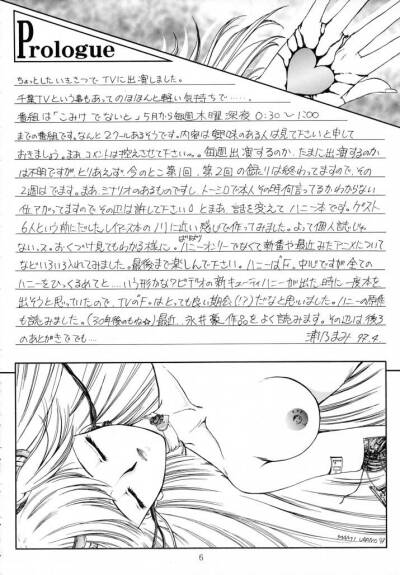 Prologue
ちょっとしたいきさつで TVに出演しました。
千葉TVという事もあってのほほんと軽い気持ちで……。
番組は「こみけでないと」5月から毎週木曜深夜0:30〜1:00
までの番組です。なんと2クールあるそうです。内容は興味のある人は見て下さいと申して
おきましょう。まあコメントは控えさせて下さい。毎週出演するのか たまに出演するのか
は不明ですが とりあえず 今のとこ第1回、第2回の録りは終わってますので、その
2週はでてます。まあ シナリオのあるものですし トーシロで本人その時何言ってるかわからない
位アガってますので その辺は許して下さい。とまあ 話を変えて ハニー本です。ゲスト
6人という前にだした レイアース本のノリに近い感じで作ってみました。よって個人誌じゃ
ないっス。おくづけ見てもわかる様に。ハニーオンリーでなくて新番や最近みたアニメについて
などいろいろ入れてみました。最後まで楽しんで下さい。ハニーは"F"中心ですが全ての
ハニーをひっくるめてと……いう形かな?ビデオの新キューティハニーが出た時に一度本を
出そうと思っていたので、TVの"F"はとっても良い機会(!?)だなと思いました。ハニーの原作
も読みました。(30年後のもね☆)最近、永井豪作品をよく読みます。その辺は後3
のあとがきででも…
浦乃まみ 97.4
6